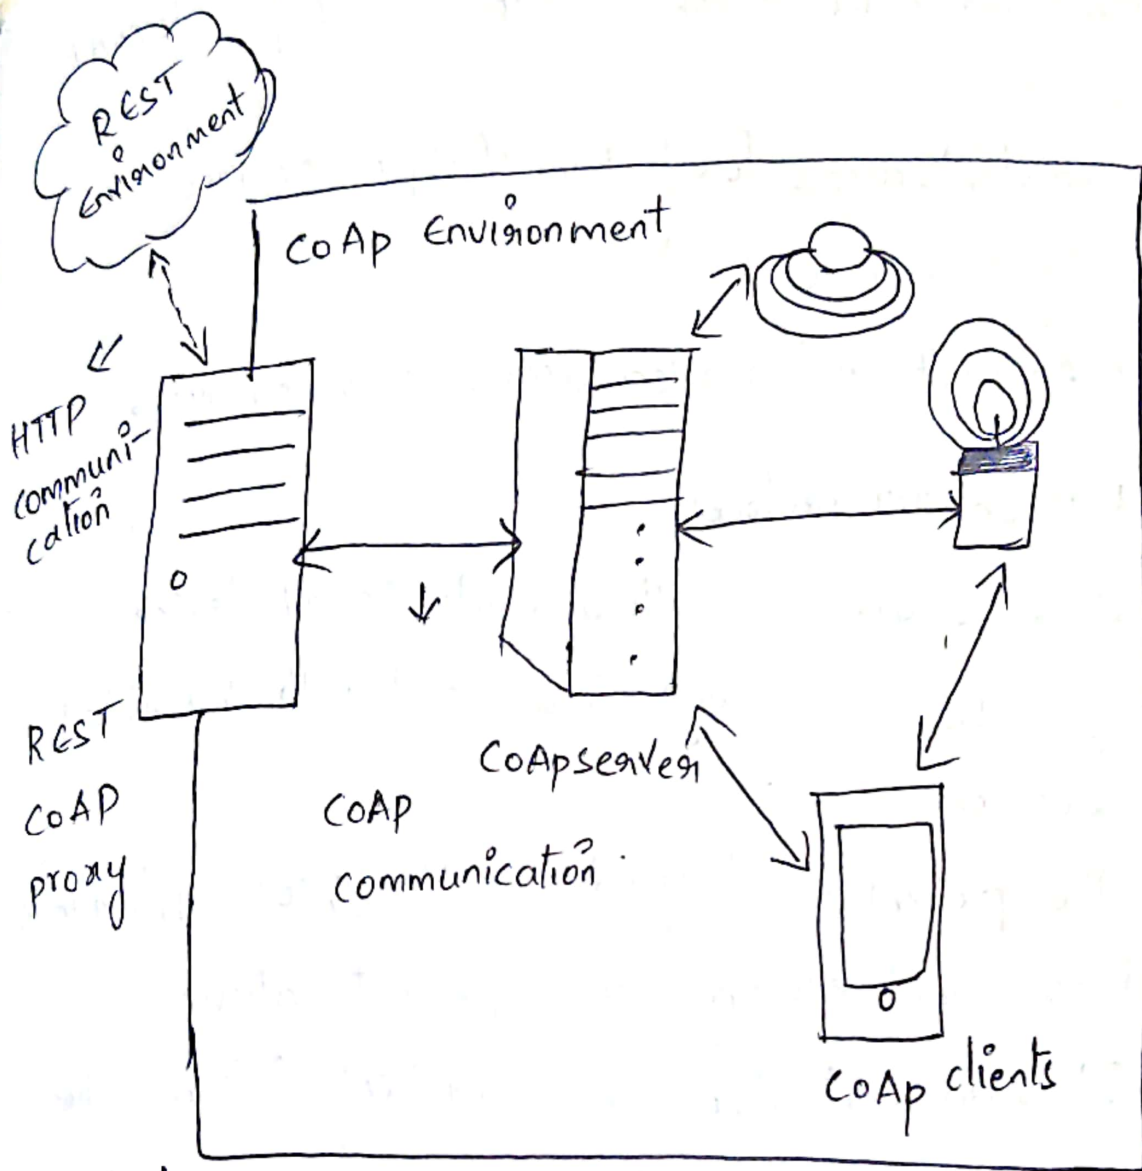 REST
Environment
CoAp Environment
HTTP
communi-
cation
REST
CoAP
proxy
CoApserver
CoAp
communication
CoAp clients